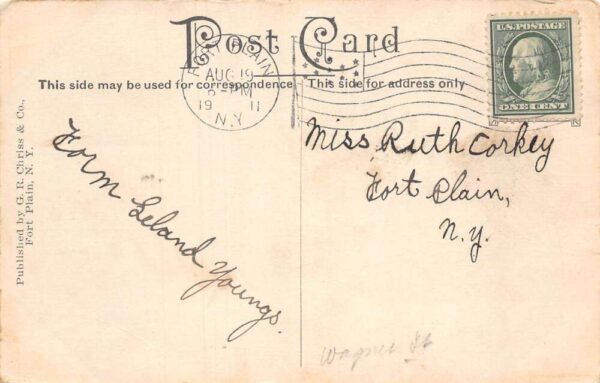 Post Card
FORT PLAIN
AUG 19
5-PM
19 11
N.Y.
U.S. POSTAGE
ONE CENT
This side may be used for correspondence
This side for address only
Published by G. R. Chriss & Co.,
Fort Plain, N. Y.
Form Leland Youngs.
Miss Ruth Corkey
Fort Plain,
N.Y.
Wagner St